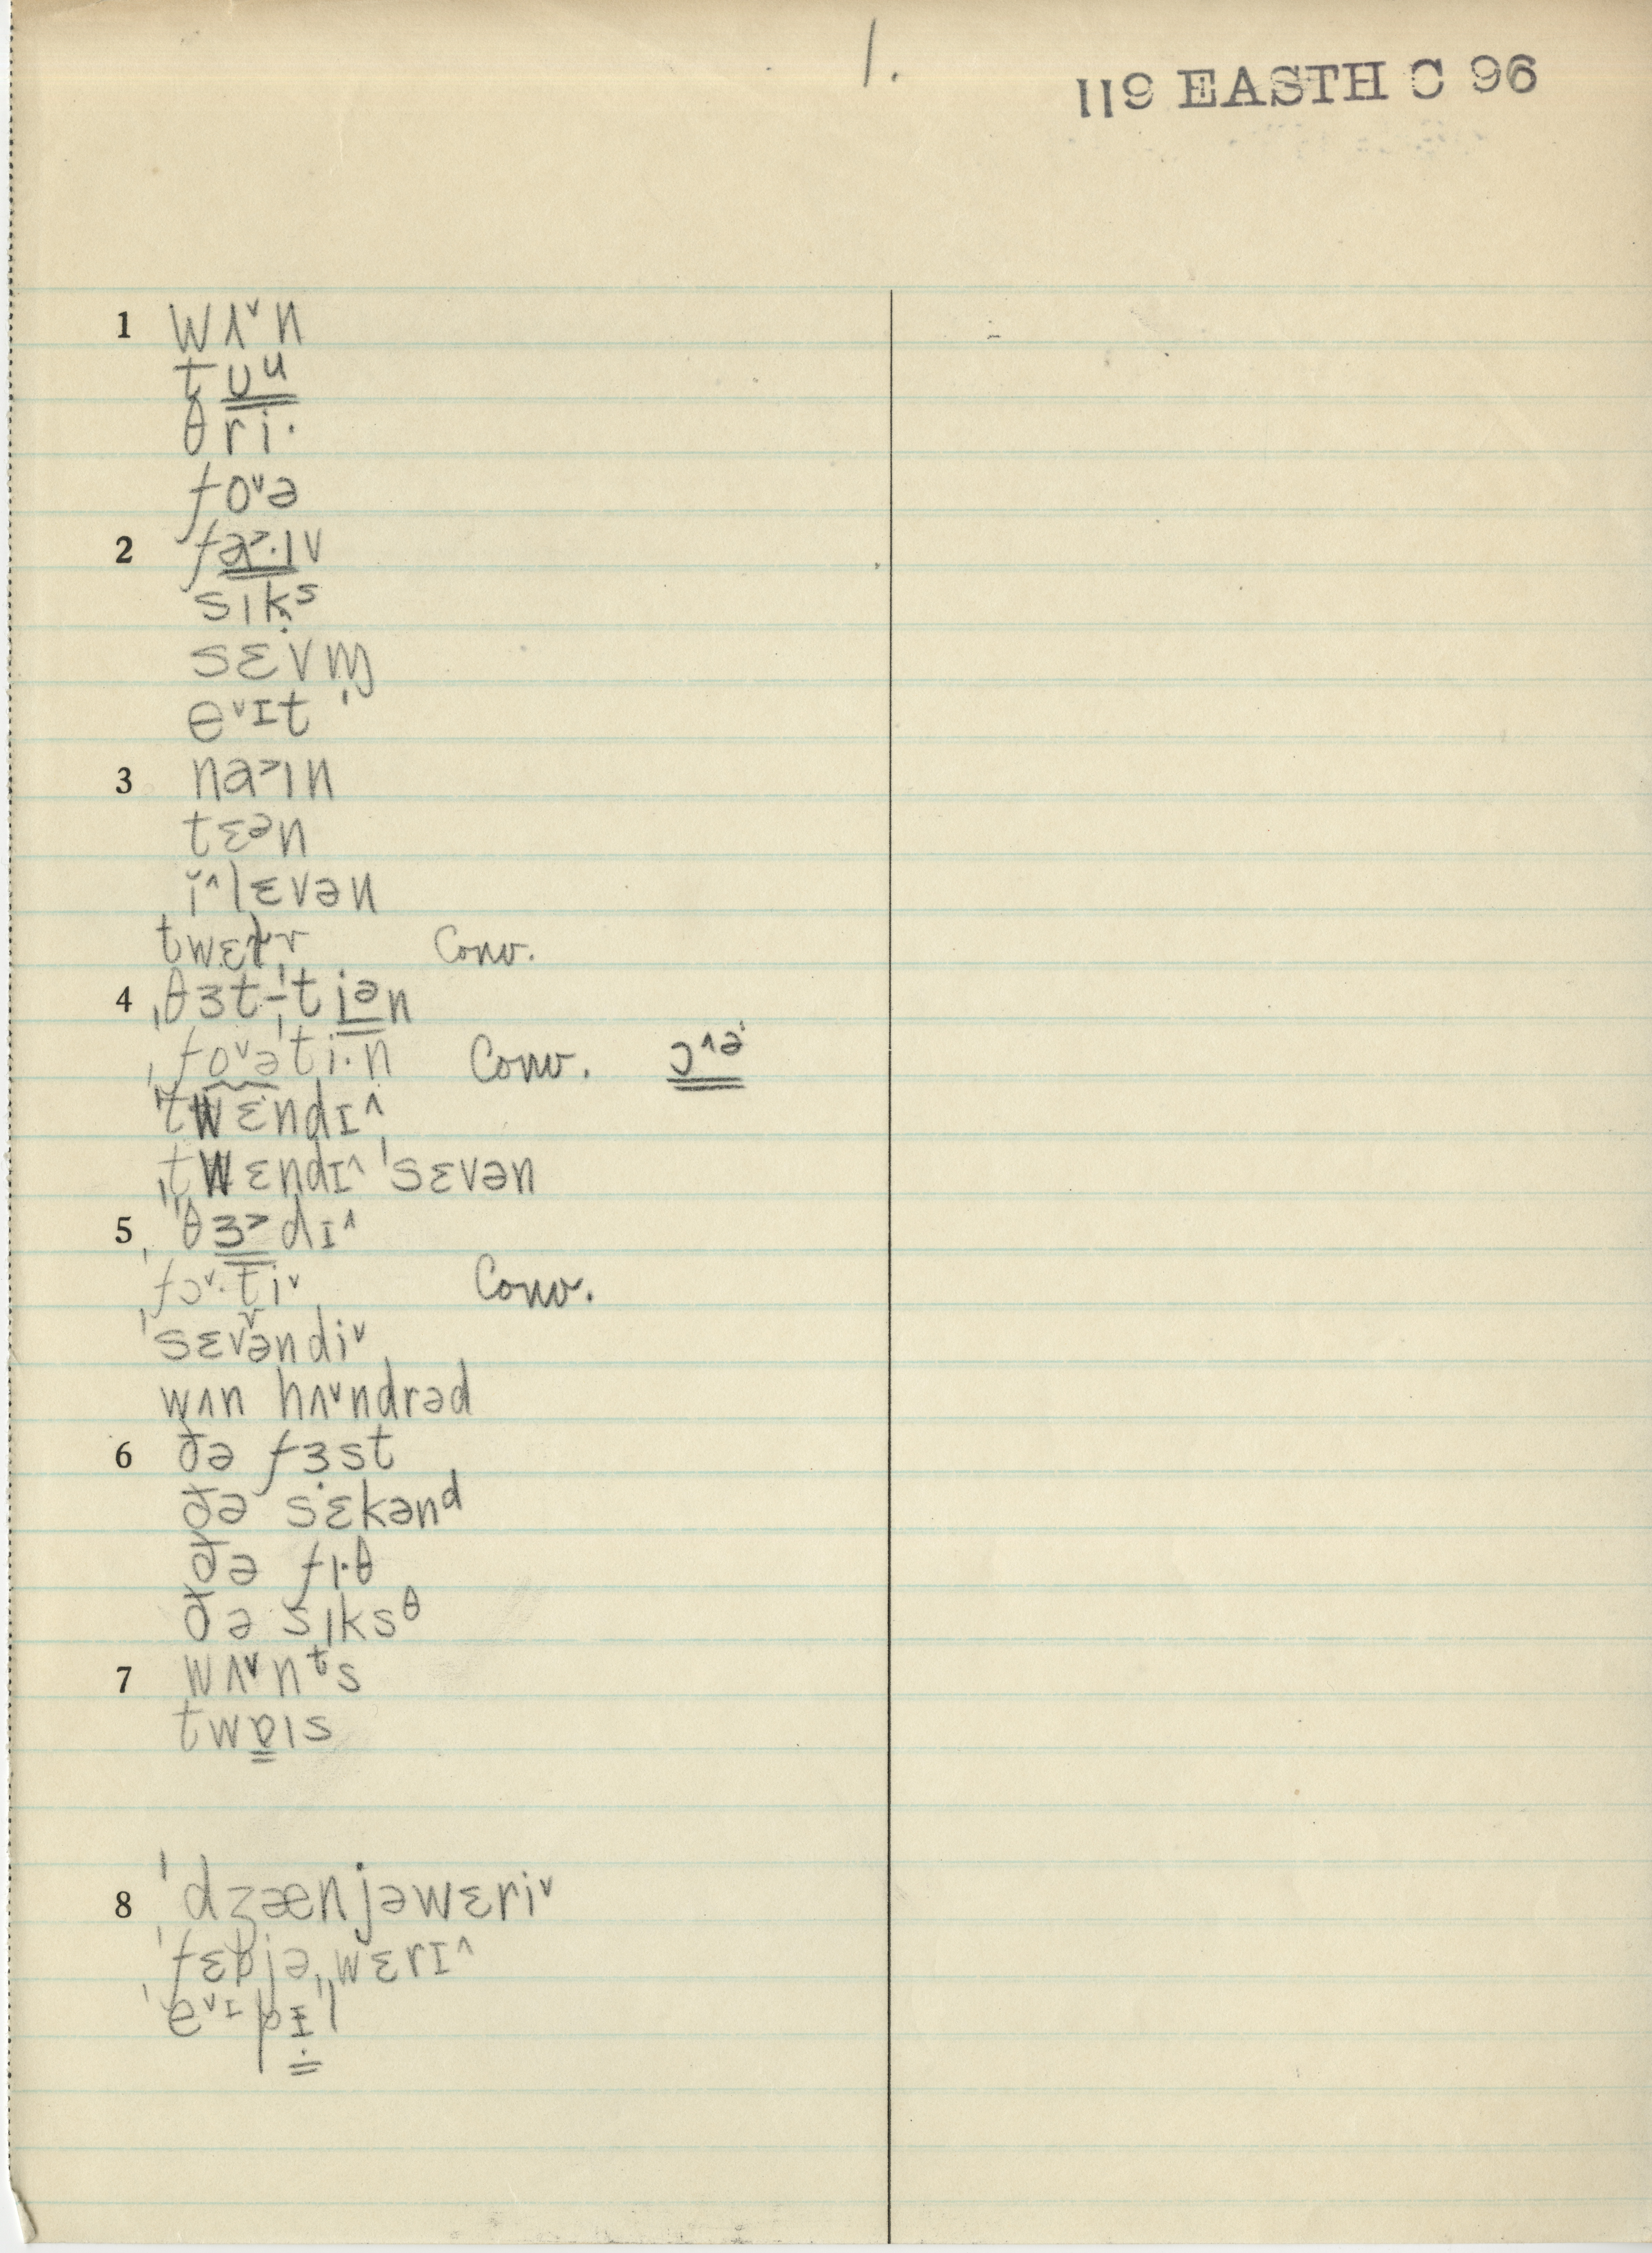 1.
119 EASTH C 96
1 wʌ˅n
tᴜu
θri·
fo˅ə
2 fa˃·ɪv
sɪkˢ
sɛvm̩
e˅ɪt
3 na˃ɪn
tɛən
i˄lɛvən
Conv.
4 ˌθɜt-ˈtiən
ˌfo˅əˈti·n Conv. ɔ˄ə
ˈtwɛndɪ˄
ˌtwɛndɪ˄ ˈsɛvən
5 ˈθɜ˃dɪ˄
ˈfɔ˅·ti˅ Conv.
ˈsɛvəndi˅
wʌn hʌ˅ndrəd
6 ðə fɜst
ðə sɛkənᵈ
ðə fɪ·θ
ðə sɪksᶿ
7 wʌ˅nᵗs
twɐɪs
8 ˈdʒænjəwɛri˅
ˈfɛbjəˌwɛrɪ˄
ˈe˅ɪpɪl